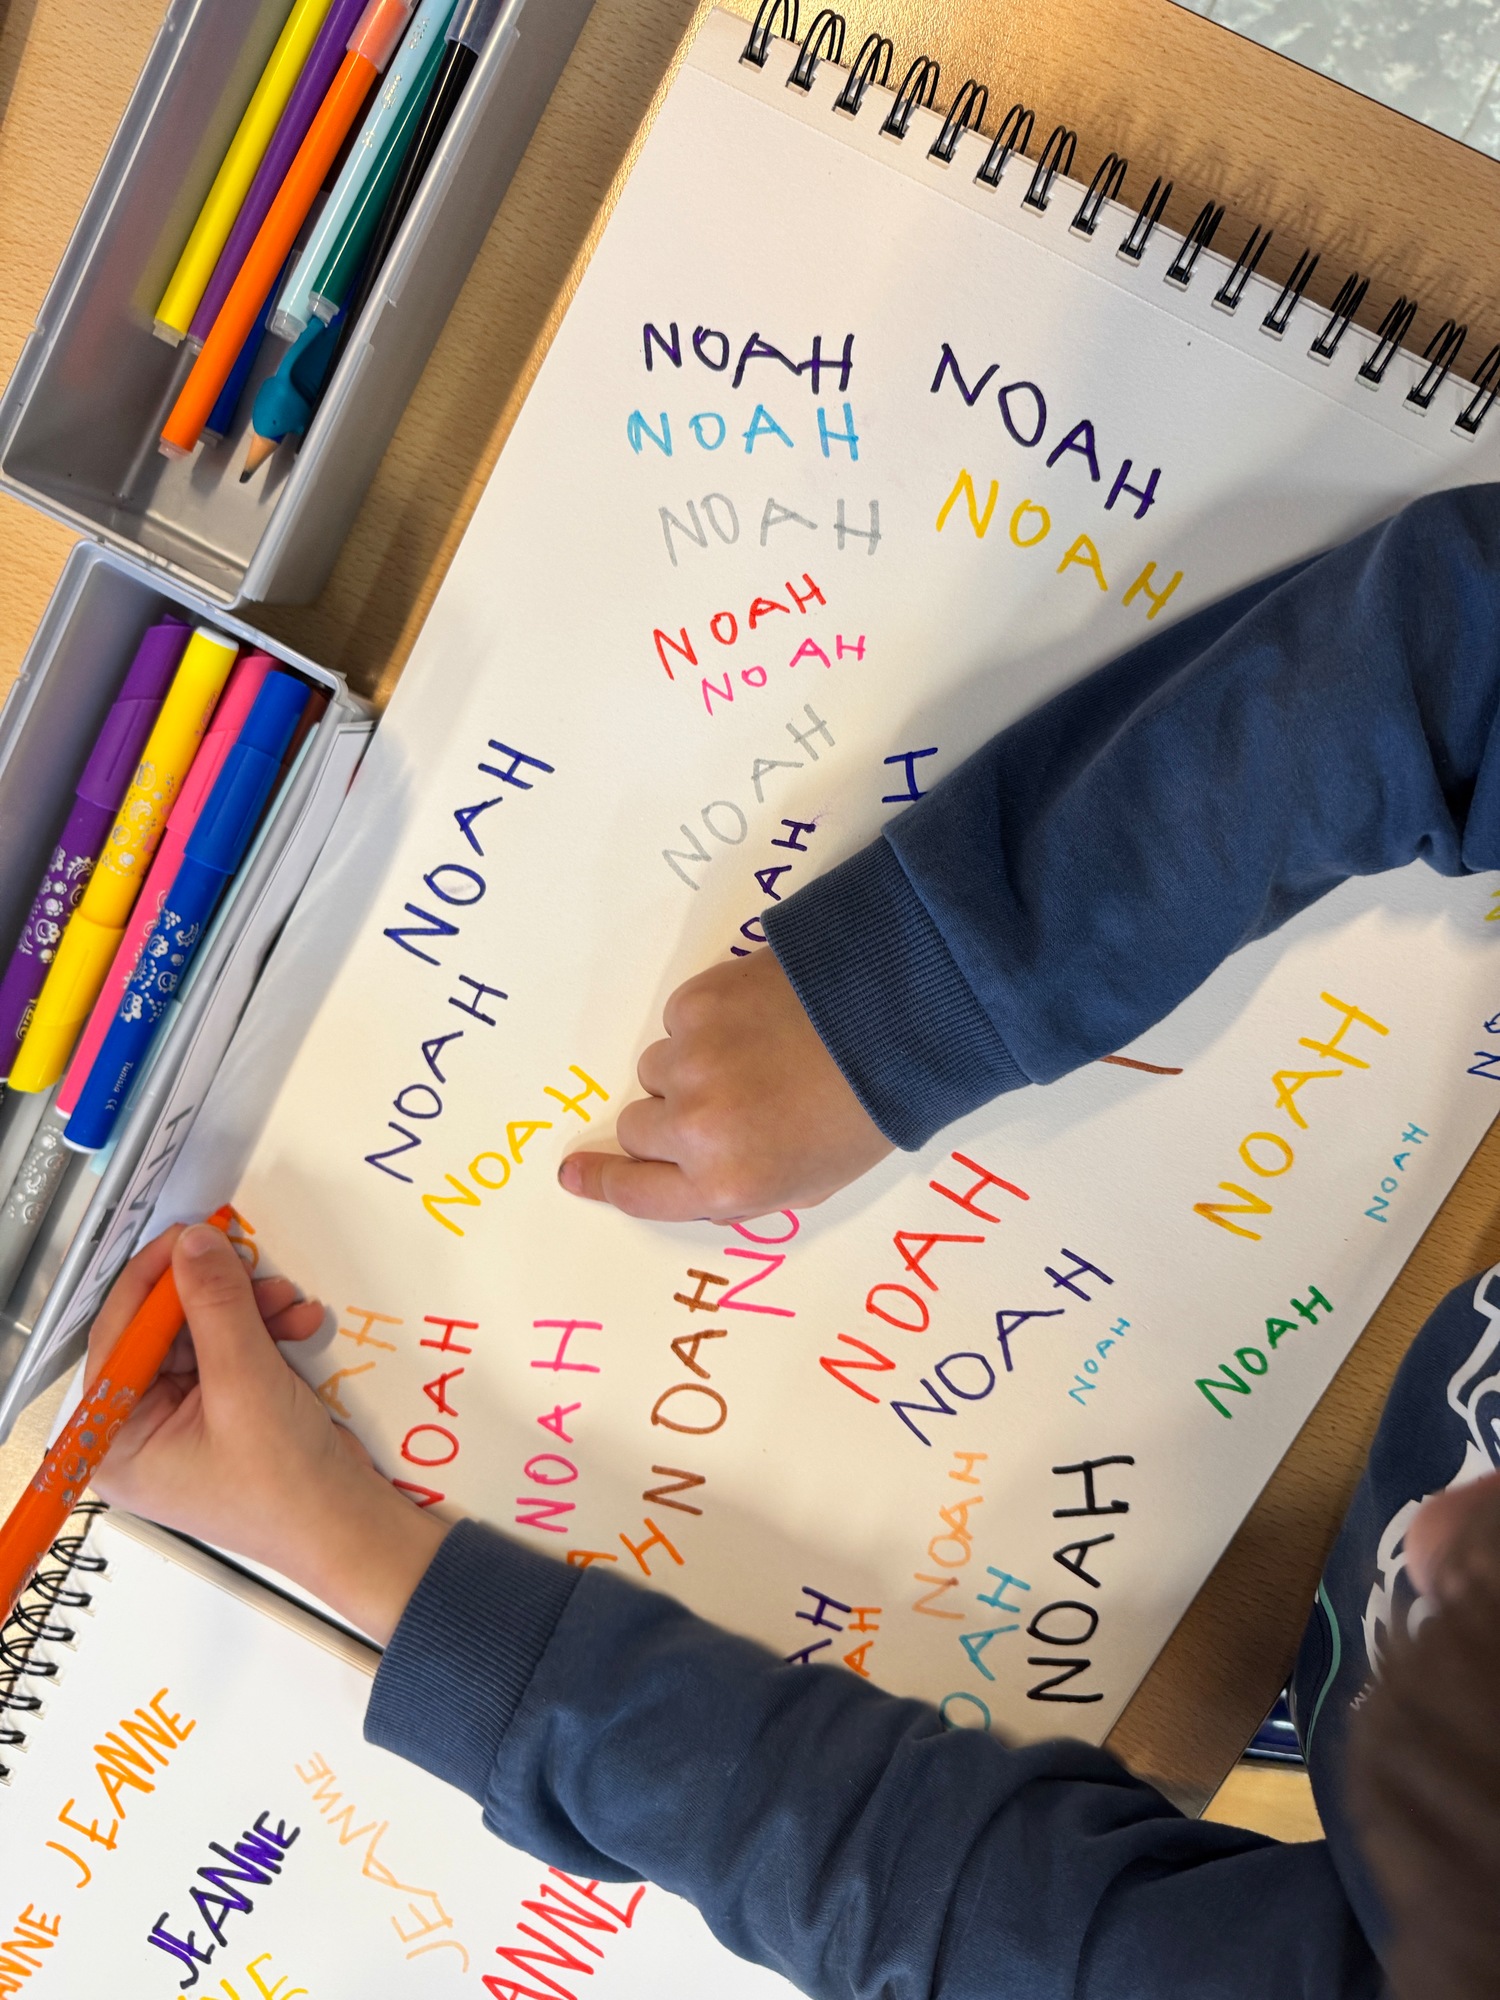 NOAH
NOAH
NOAH
NOAH
NOAH
NOAH
NOAH
NOAH
H
OAH
NOAH
NOAH
NOAH
NOAH
NOAH
NO
NOAH
NOAH
NOAH
NOAH
NOAH
AH
OAH
NOAH
N OAH
NOAH
NOAH
AH
AH
OAH
NOAH
JEANNE
JEANNE
JEANNE
ANNE
ANNE
NE
Tunisia CE